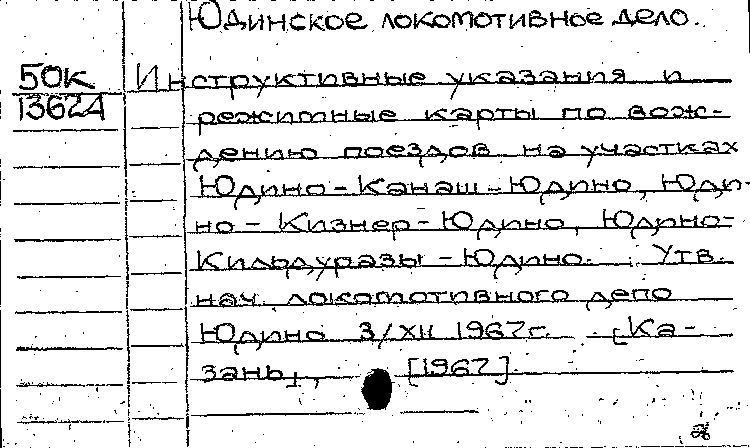 Юдинское локомотивное депо.
50к Инструктивные указания и
13624 режимные карты по вож-
дению поездов на участках
Юдино-Канаш-Юдино, Юди-
но-Кизнер-Юдино, Юдино-
Кильдуразы-Юдино. Утв.
нач. локомотивного депо
Юдино 3/XII 1967г. [Ка-
зань], [1967].